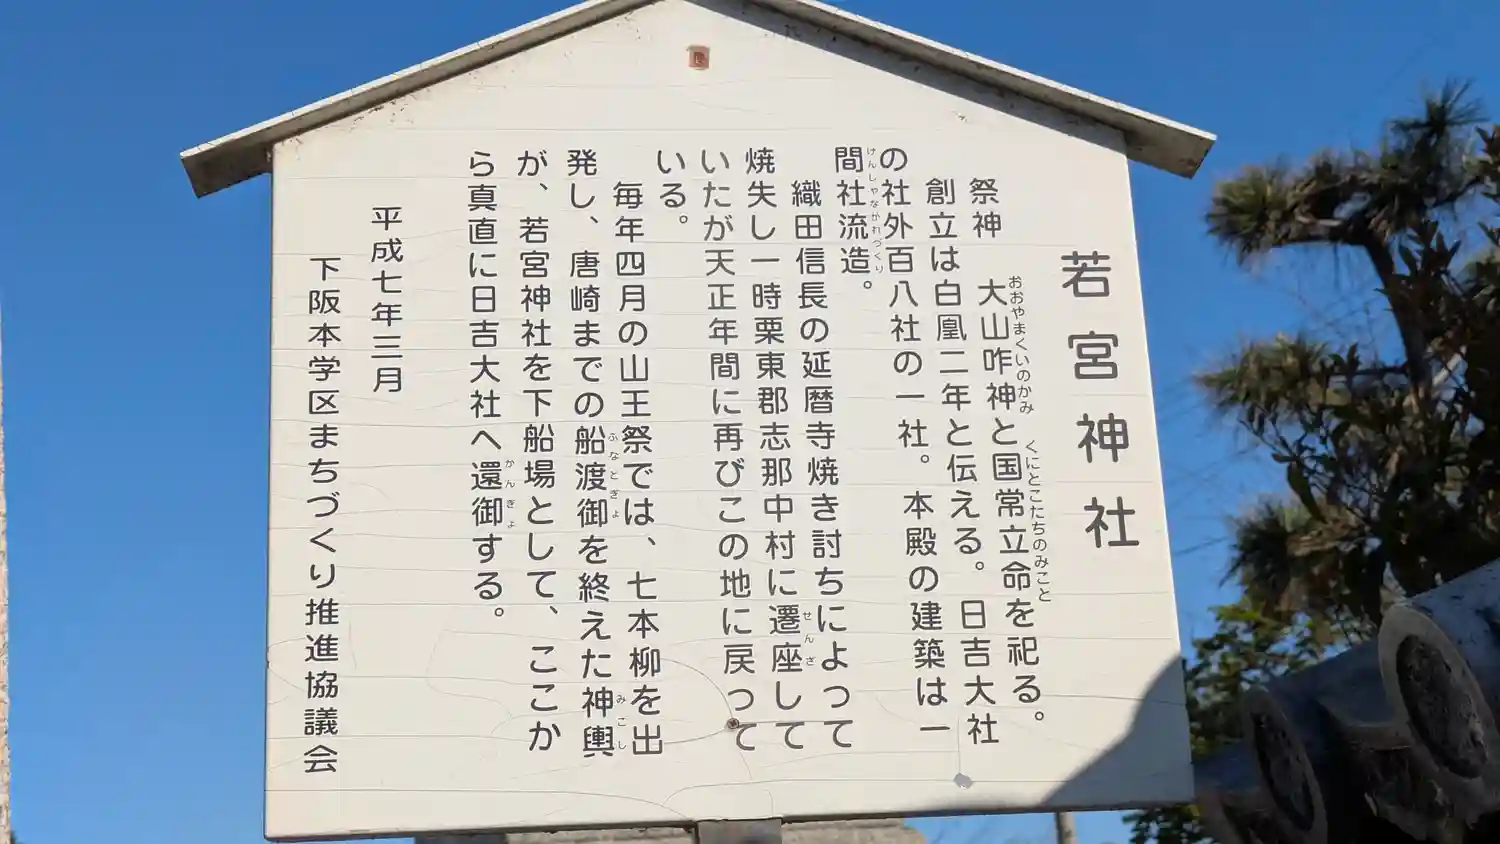 若宮神社
祭神　大山咋神と国常立命を祀る。
おおやまくいのかみ
くにとこたちのみこと
創立は白凰二年と伝える。日吉大社
の社外百八社の一社。本殿の建築は一
間社流造。
けんしゃながれづくり
織田信長の延暦寺焼き討ちによって
焼失し一時栗東郡志那中村に遷座して
せんざ
いたが天正年間に再びこの地に戻って
いる。
毎年四月の山王祭では、七本柳を出
発し、唐崎までの船渡御を終えた神輿
ふなとぎょ
みこし
が、若宮神社を下船場として、ここか
ら真直に日吉大社へ還御する。
かんぎょ
平成七年三月
下阪本学区まちづくり推進協議会